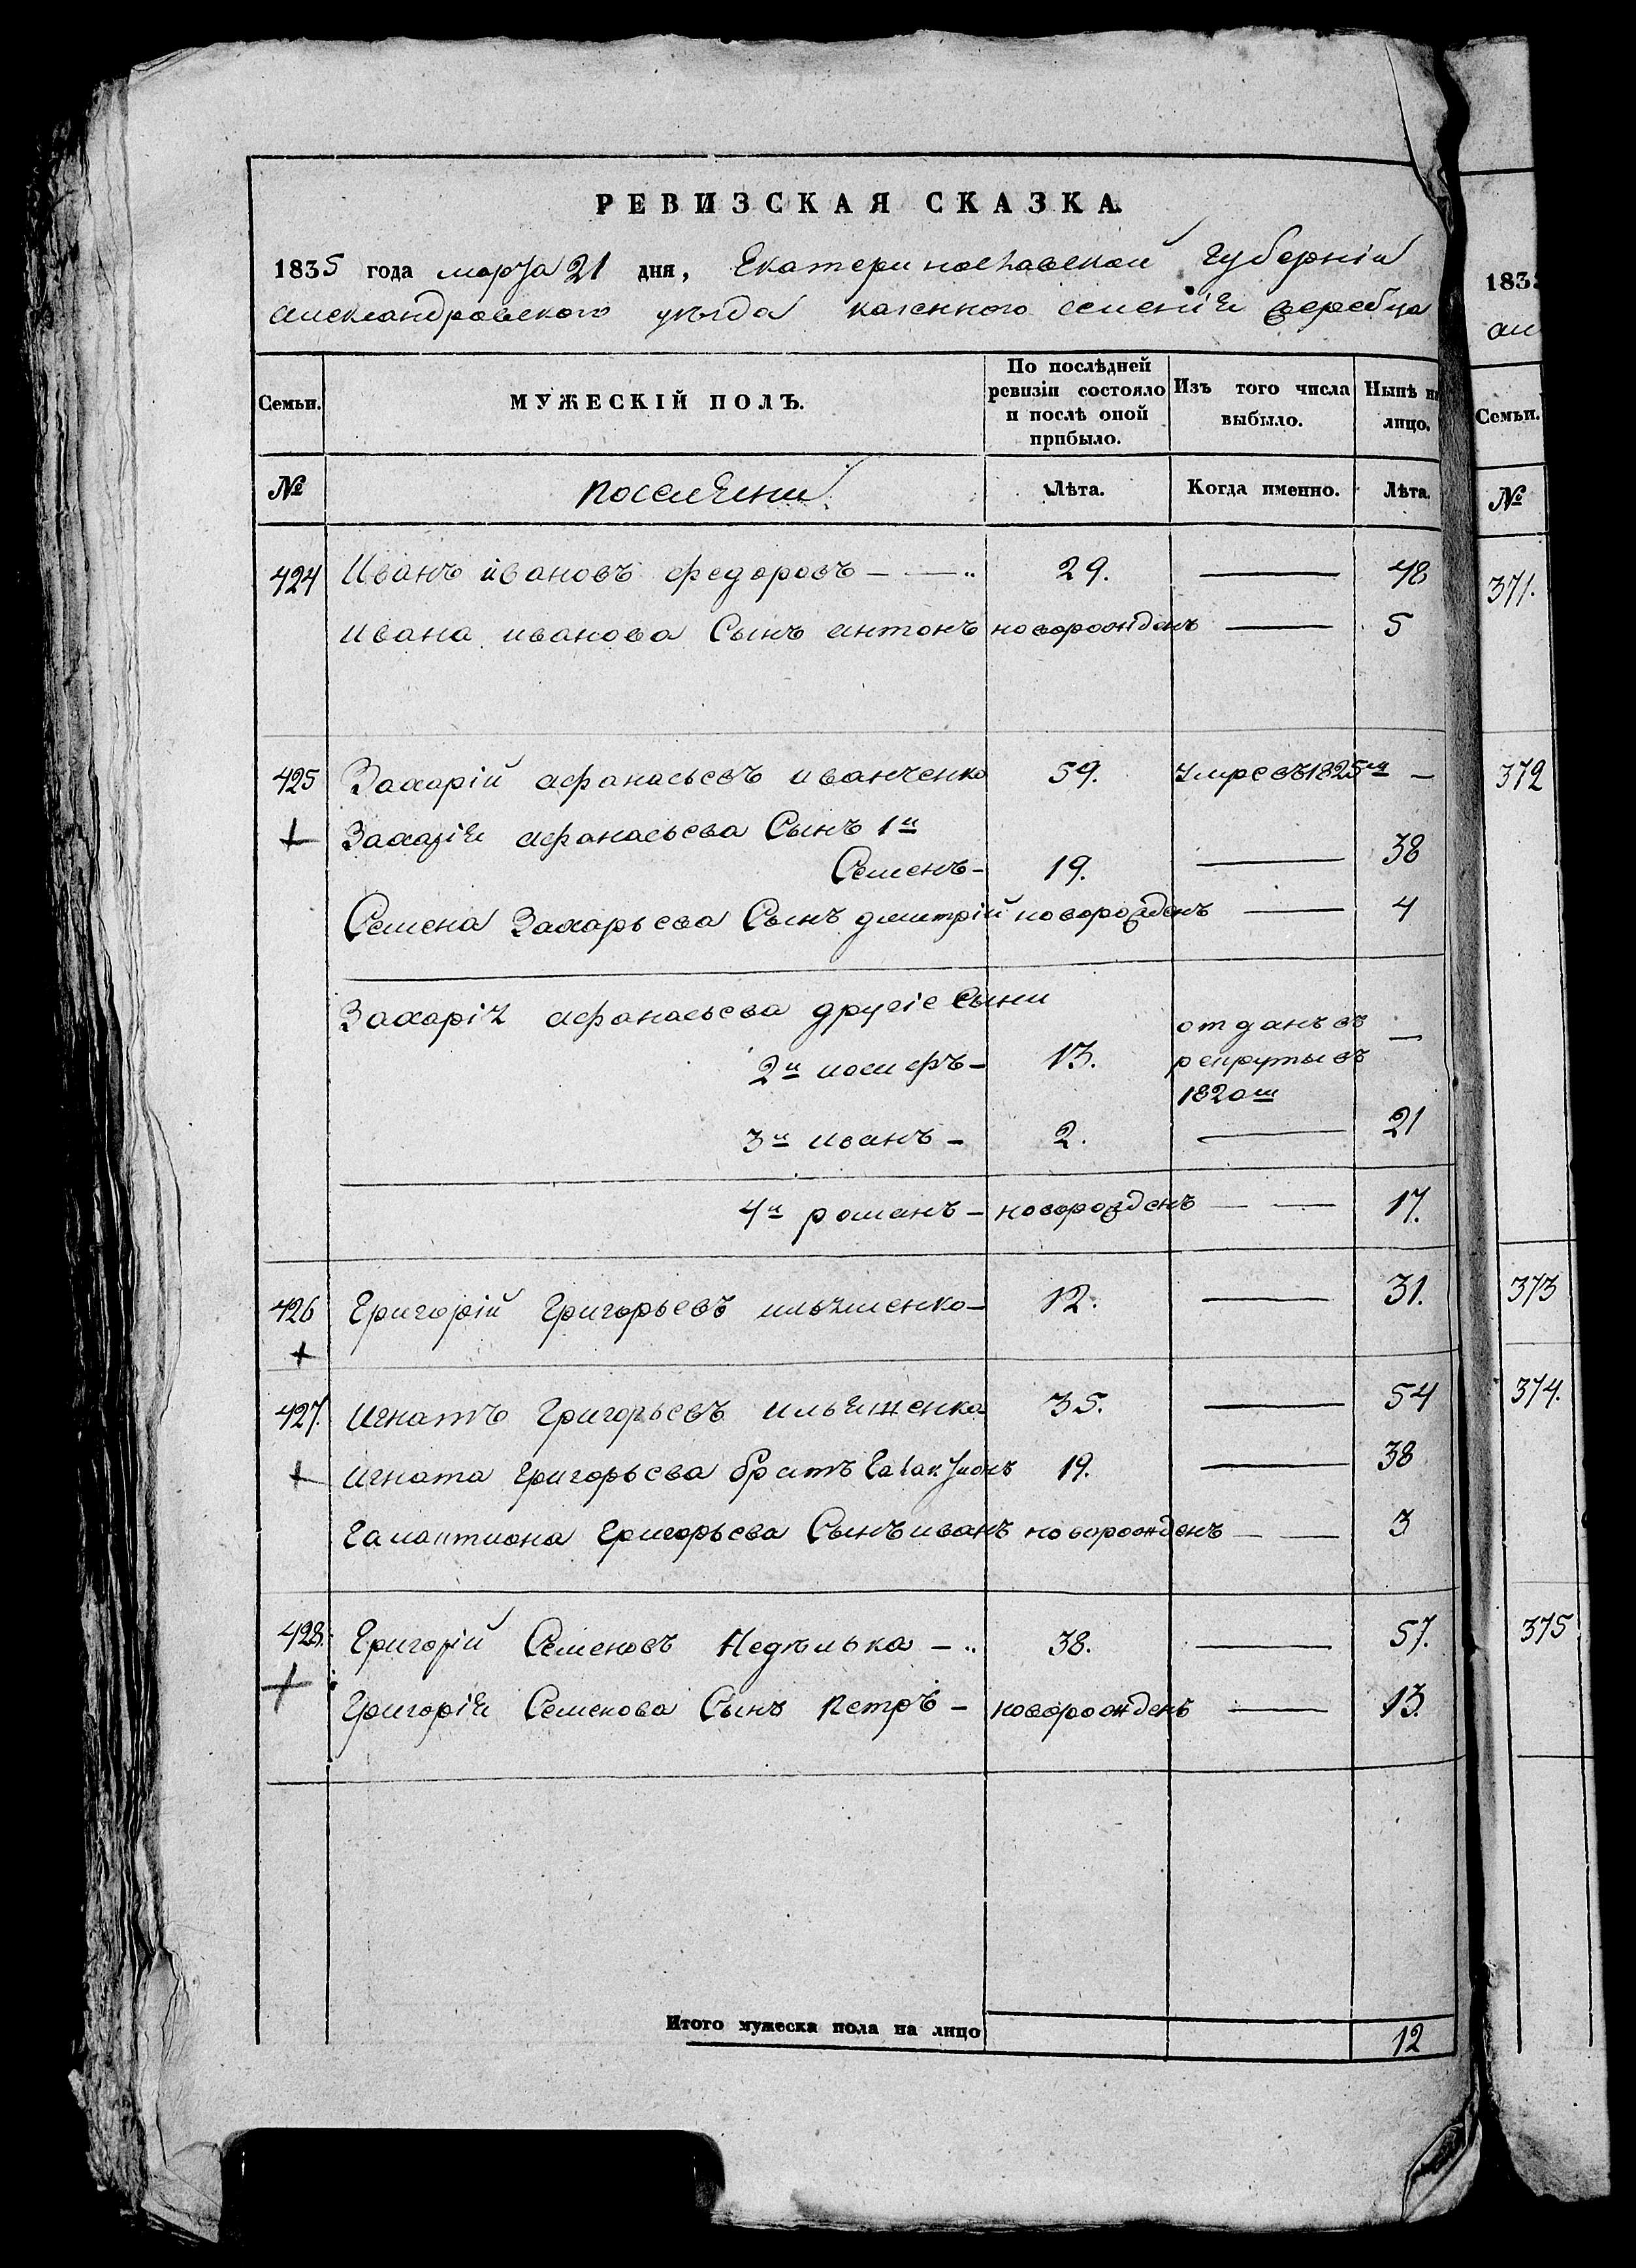 РЕВИЗСКАЯ СКАЗКА.
1835 года марта 21 дня, Екатеринославской Губерніи
александровского уѣзда казенного селенія жеребца
Семьи. МУЖЕСКІЙ ПОЛЪ. По послѣдней ревизіи состояло и послѣ оной прибыло. Изъ того числа выбыло. Нынѣ на лицо.
№ поселяни Лѣта. Когда именно. Лѣта.
424 Иванъ ивановъ федоровъ — — 29. — 48
ивана иванова Сынъ антонъ новорожденъ — 5
425 Захарій афанасьевъ иванченко 59. умре въ 1825мъ —
Захарія афанасьева Сынъ 1й
Семенъ — 19. — 38
Семена Захарьева Сынъ дмитрій новорожденъ — 4
Захарія афанасьева другіе Сыни
2й иосифъ — 13. отданъ въ —
рекруты въ
1820мъ
3й иванъ — 2. — 21
4й романъ — новорожденъ — — 17.
426 Григорій Григорьевъ ильяшенко — 12. — 31.
427. игнатъ Григорьевъ ильяшенко 35. — 54
игната григорьева братъ Галактионъ 19. — 38
Галактиона Григорьева Сынъ иванъ новорожденъ — — 3
428. Григорій Семеновъ Недѣлька — 38. — 57.
Григорія Семенова Сынъ петръ — новорожденъ — 13.
Итого мужеска пола на лицо 12
183
ал
Семьи.
№
371.
372
373
374.
375